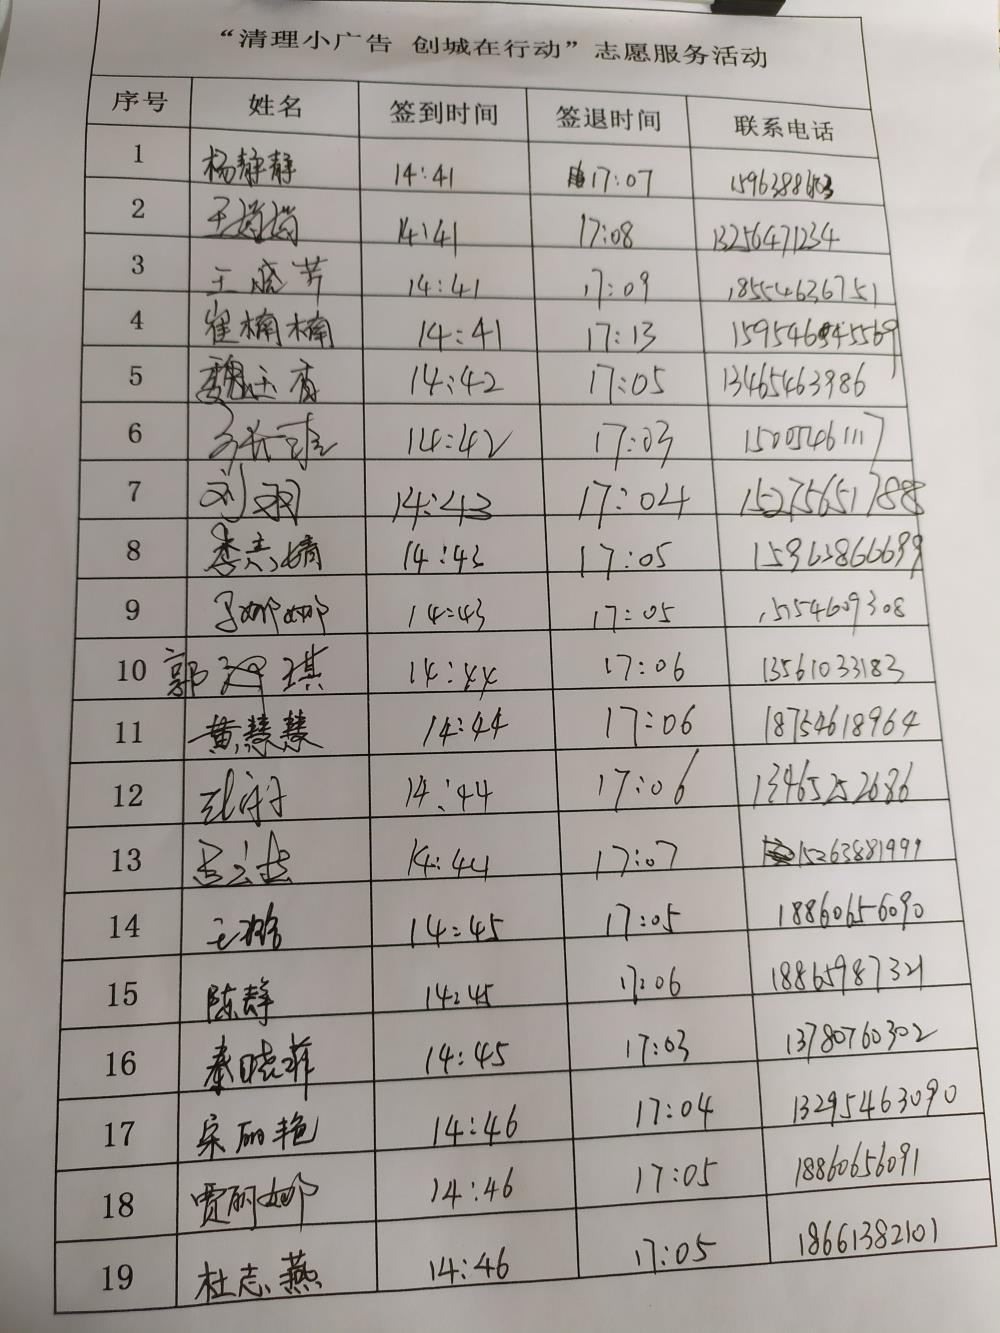 “清理小广告 创城在行动”志愿服务活动
序号 姓名 签到时间 签退时间 联系电话
1 杨静静 14:41 17:07
2 14:41 17:08 13256471234
3 王晓芳 14:41 17:09 18554636751
4 崔楠楠 14:41 17:13
5 14:42 17:05 13465463986
6 14:42 17:03 15005461117
7 刘羽 14:43 17:04 15275651788
8 14:43 17:05 15963866699
9 马娜娜 14:43 17:05 15154609308
10 14:44 17:06 13561033183
11 黄慧慧 14:44 17:06 18754618964
12 14:44 17:06 13465252686
13 14:44 17:07 15263881999
14 王璐 14:45 17:05 18860656090
15 陈静 14:45 17:06 18865987321
16 秦晓菲 14:45 17:03 13780760302
17 宋丽艳 14:46 17:04 13295463090
18 贾丽娜 14:46 17:05 18860656091
19 杜志燕 14:46 17:05 18661382101